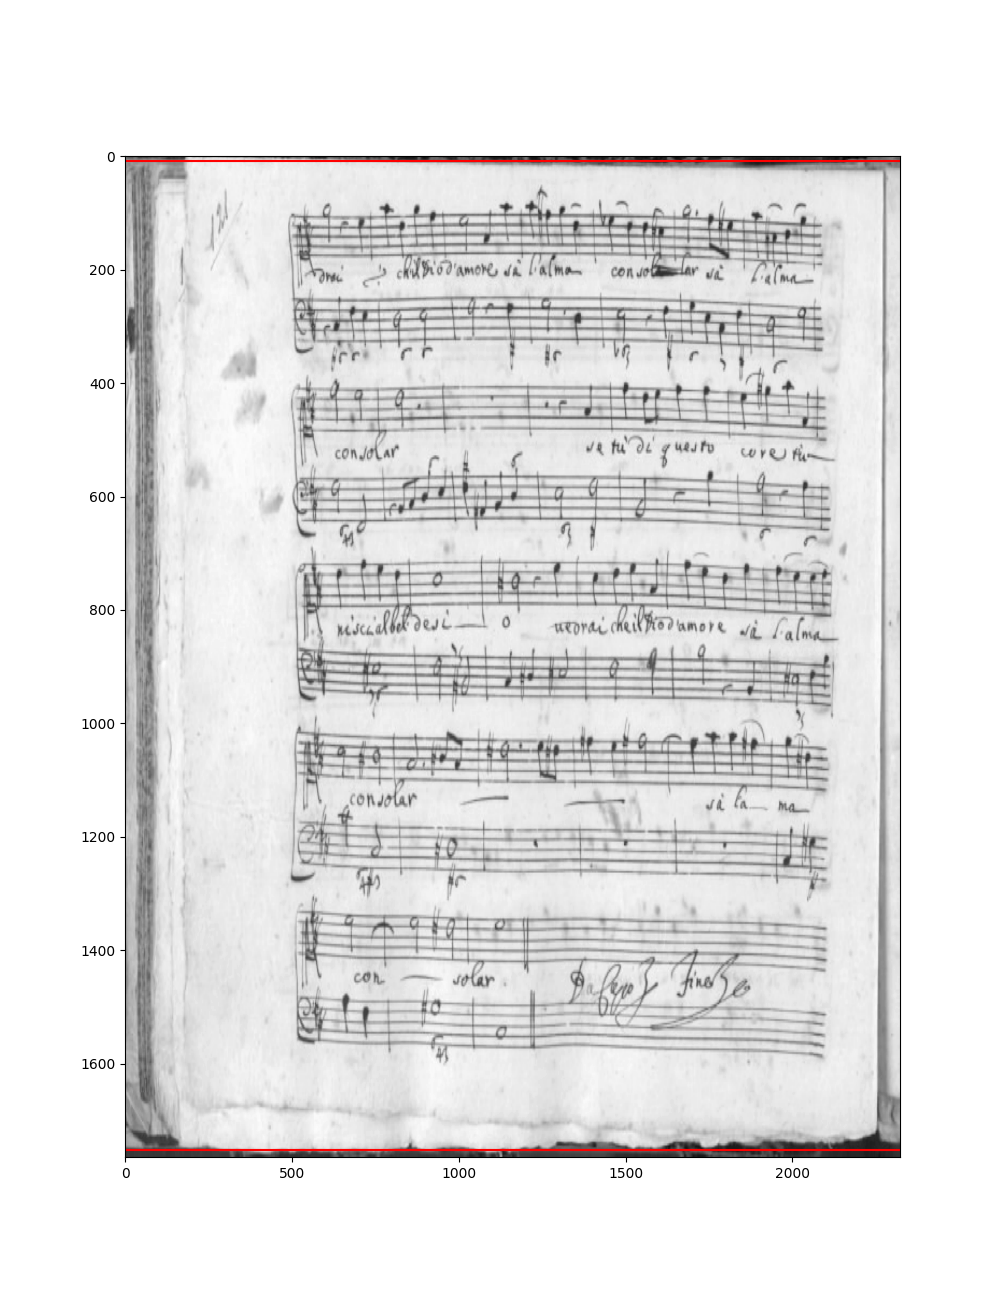 121
drai che il Dio d'amore sà l'alma consolar sà l'alma
consolar se tù di questo core tu
nisci al bel desi o uedrai che il Dio d'amore sà l'alma
consolar sà l'a ma
con solar.
Da Capo Fine
0
200
400
600
800
1000
1200
1400
1600
0 500 1000 1500 2000